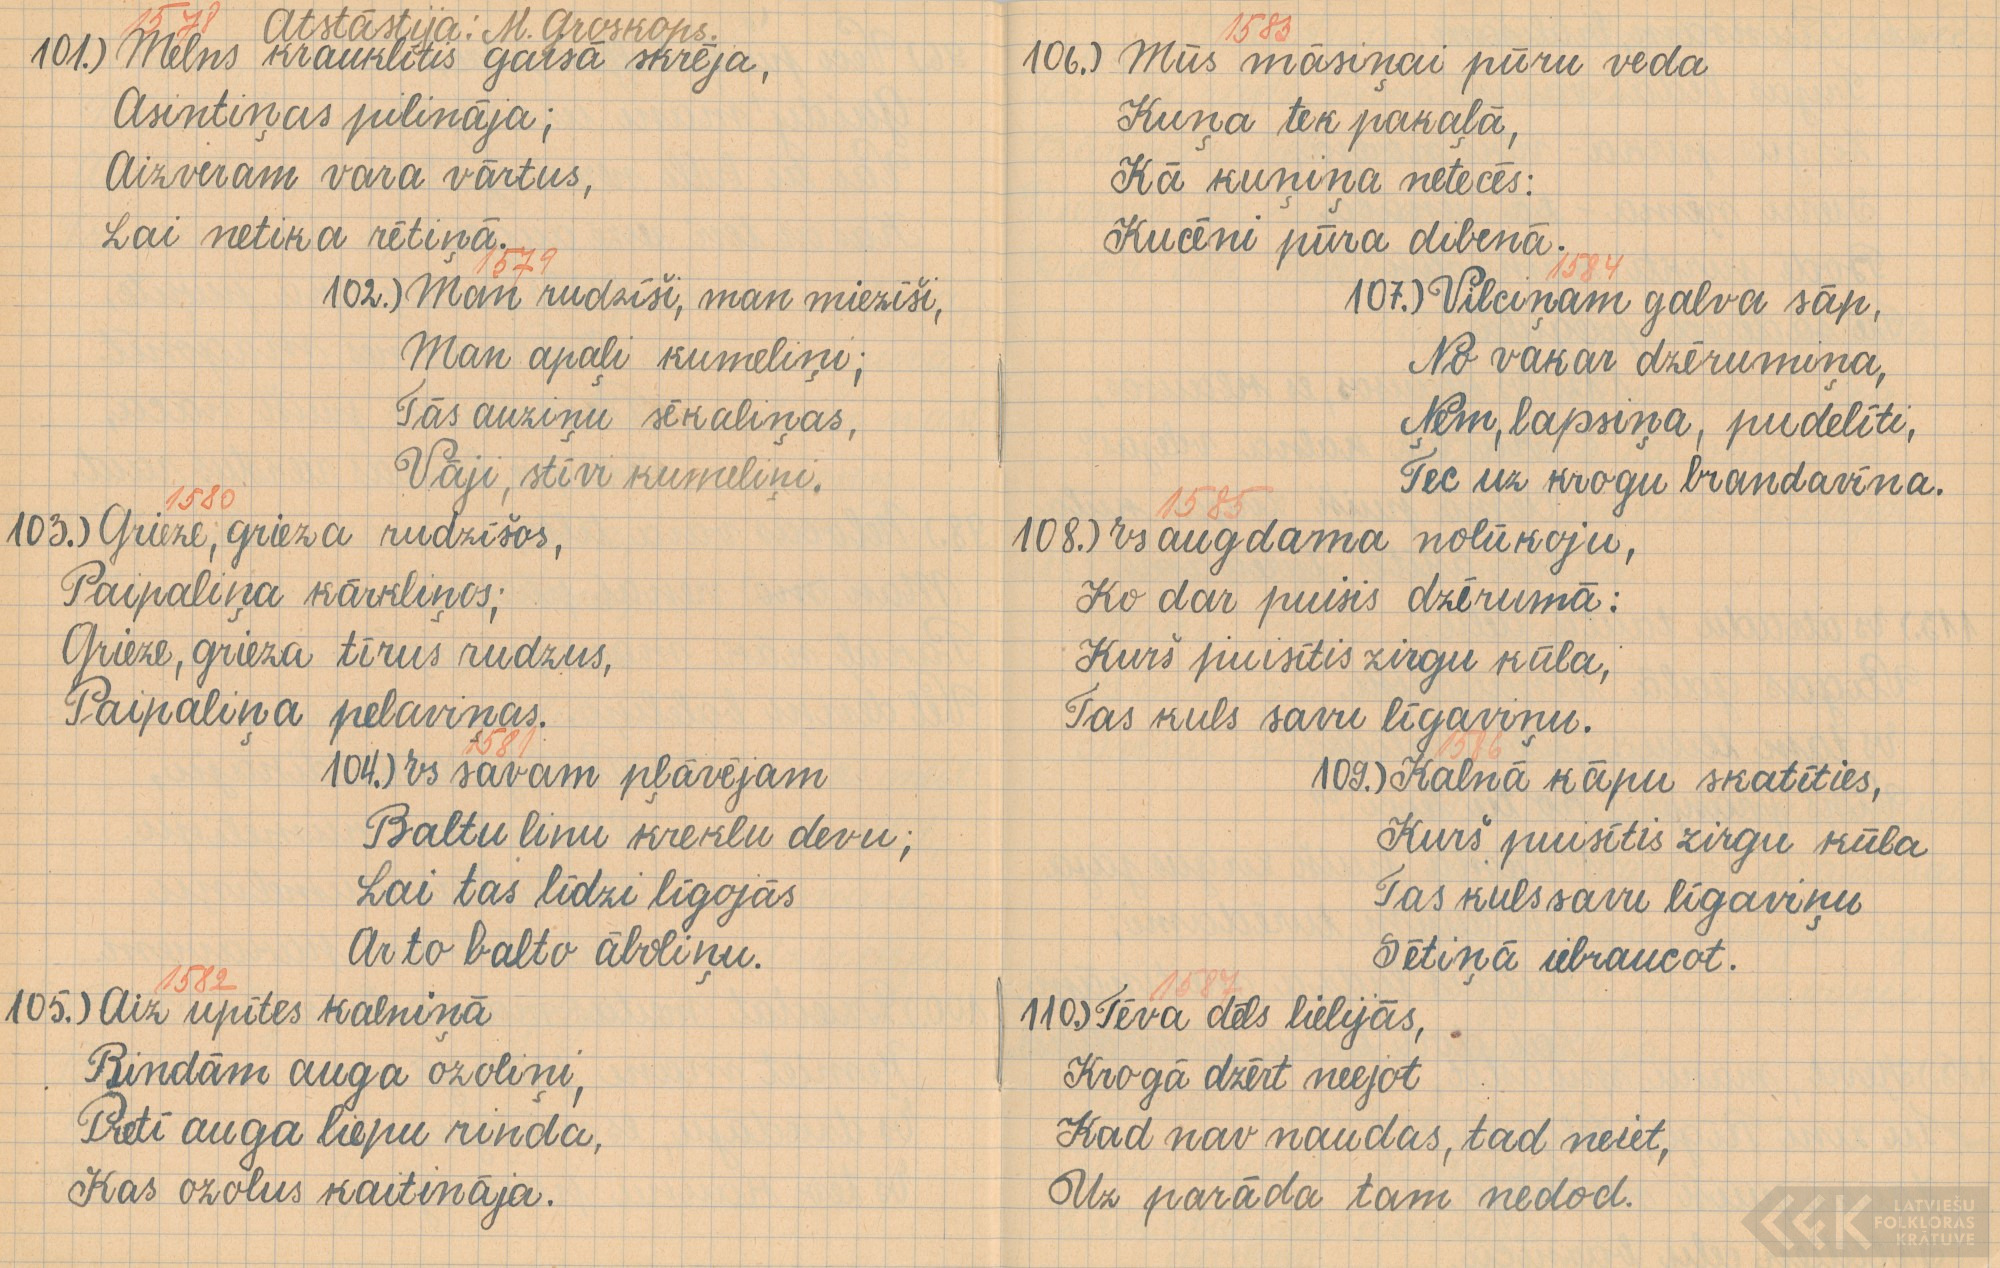 1578 Atstāstīja: M. Groskops.
101.) Melns krauklītis gaisā skrēja,
Asintiņas pilināja;
Aizveram vara vārtus,
Lai netika rētiņā.
1579
102.) Man rudzīši, man miezīši,
Man apaļi kumeliņi;
Tās auziņu sēkaliņas,
Vāji, stīvi kumeliņi.
1580
103.) Grieze, grieza rudzīšos,
Paipaliņa kārkliņos;
Grieze, grieza tīrus rudzus,
Paipaliņa pelaviņas.
1581
104.) Es savam pļāvējam
Baltu linu kreklu devu;
Lai tas līdzi līgojās
Ar to balto āboliņu.
1582
105.) Aiz upītes kalniņā
Rindām auga ozoliņi,
Pretī auga liepu rinda,
Kas ozolus kaitināja.
1583
106.) Mūs māsiņai pūru veda
Kuņa tek pakaļā,
Kā kuņiņa netecēs:
Kucēni pūra dibenā.
1584
107.) Vilciņam galva sāp,
No vakar dzērumiņa,
Ņem, lapsiņa, pudelīti,
Tec uz krogu brandavīna.
1585
108.) Es augdama nolūkoju,
Ko dar puisis dzērumā:
Kurš puisītis zirgu kūla,
Tas kuls savu līgaviņu.
1586
109.) Kalnā kāpu skatīties,
Kurš puisītis zirgu kūla
Tas kuls savu līgaviņu
Sētiņā iebraucot.
1587
110.) Tēva dēls lielijās,
Krogā dzērt neejot
Kad nav naudas, tad neiet,
Uz parāda tam nedod.
LATVIEŠU
FOLKLORAS
KRĀTUVE